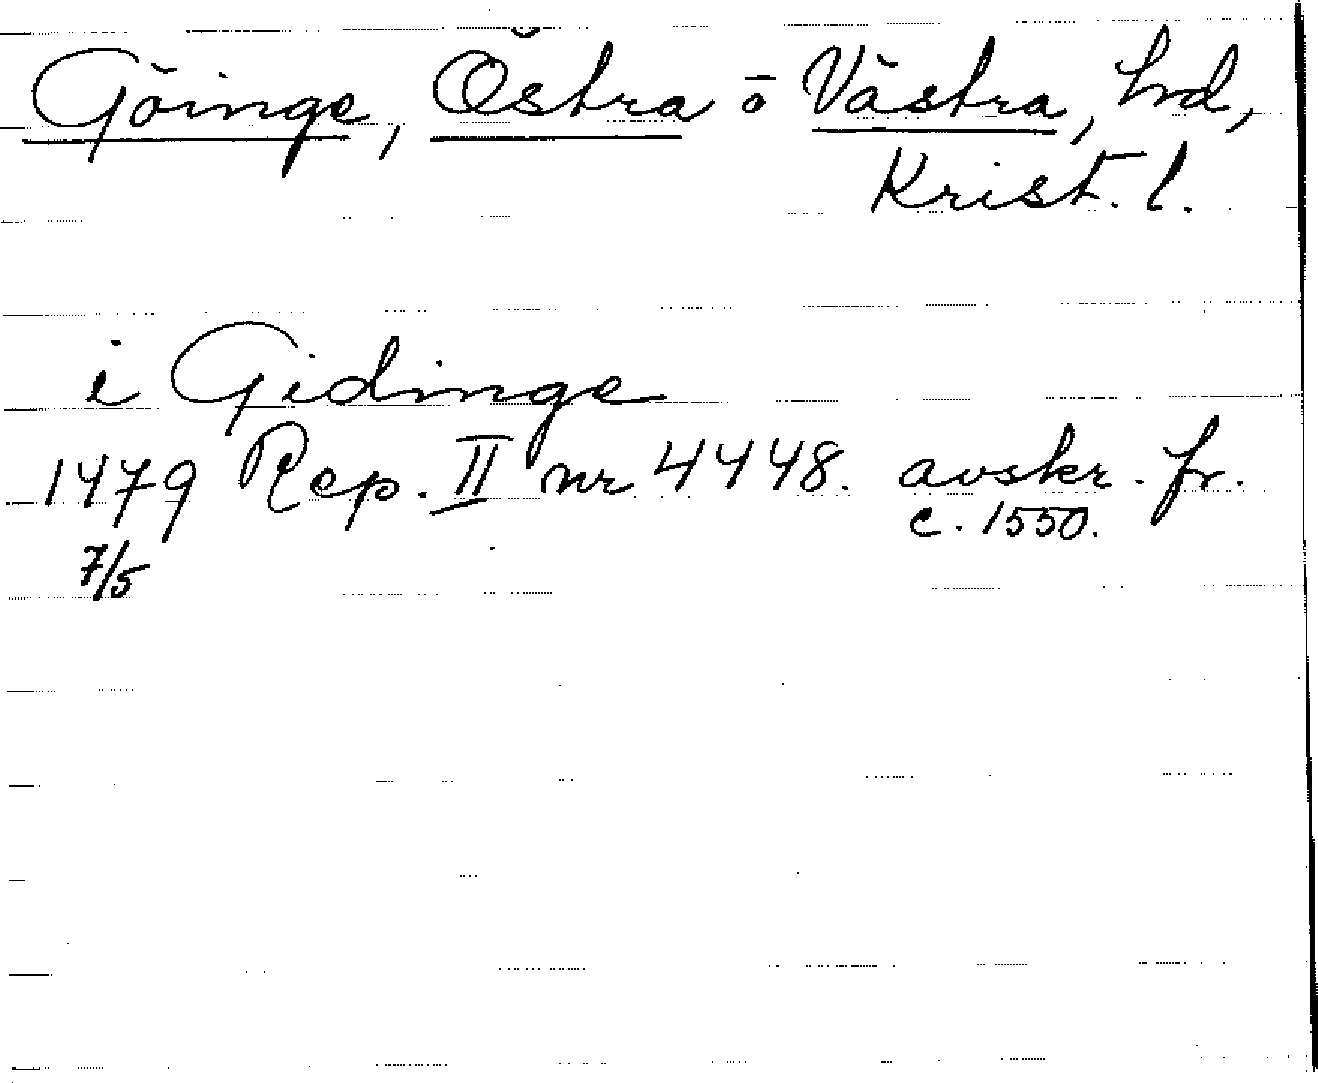 Göinge, Östra o Västra, hrd,
Krist. l.
i Gidinge
1479 Rep. II nr 4448. avskr. fr.
c. 1550.
7/5